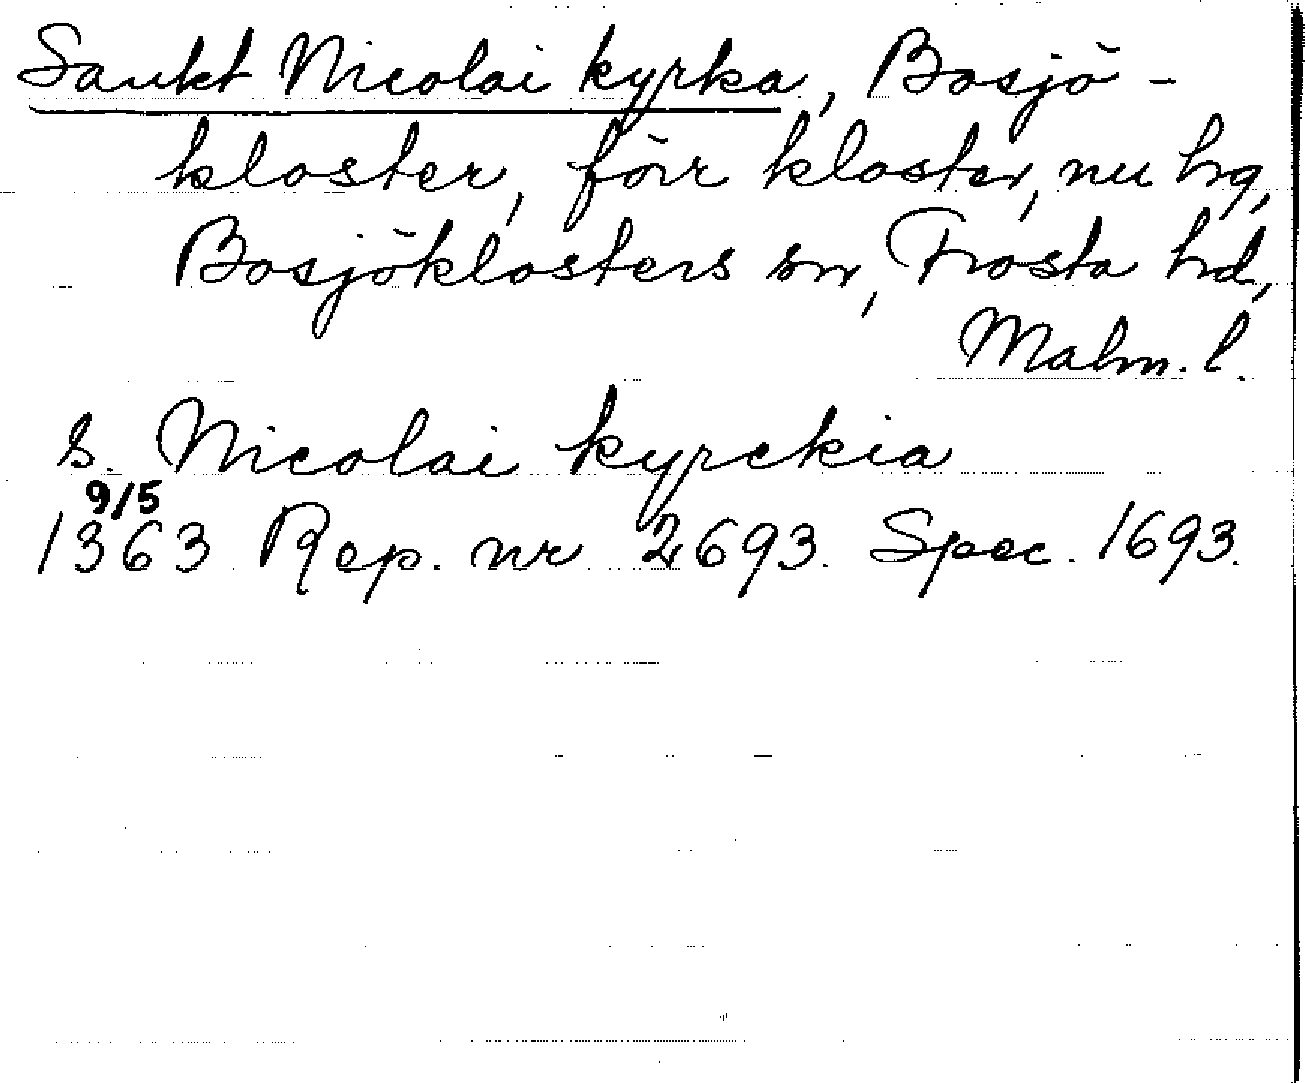 Sankt Nicolai kyrka, Bosjö-
kloster, förr kloster, nu hrg,
Bosjöklosters sn, Frosta hd,
Malm. l.
s. Nicolai kyrckia
9/5
1363 Rep. nr 2693. Spec. 1693.